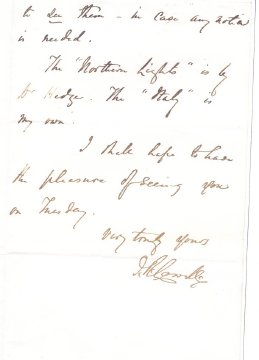 to see them - in case any notice
is needed.
The "Northern Lights" is by
Dr Hedge. The "Italy" is
my own.
I shall hope to have
the pleasure of seeing you
on Tuesday.
Very truly yours